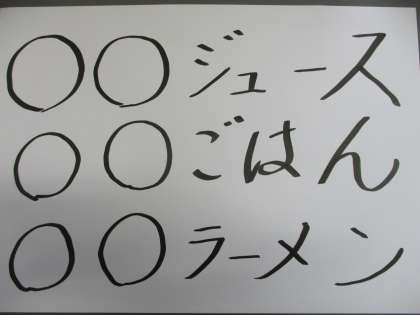 ○○ジュース
○○ごはん
○○ラーメン